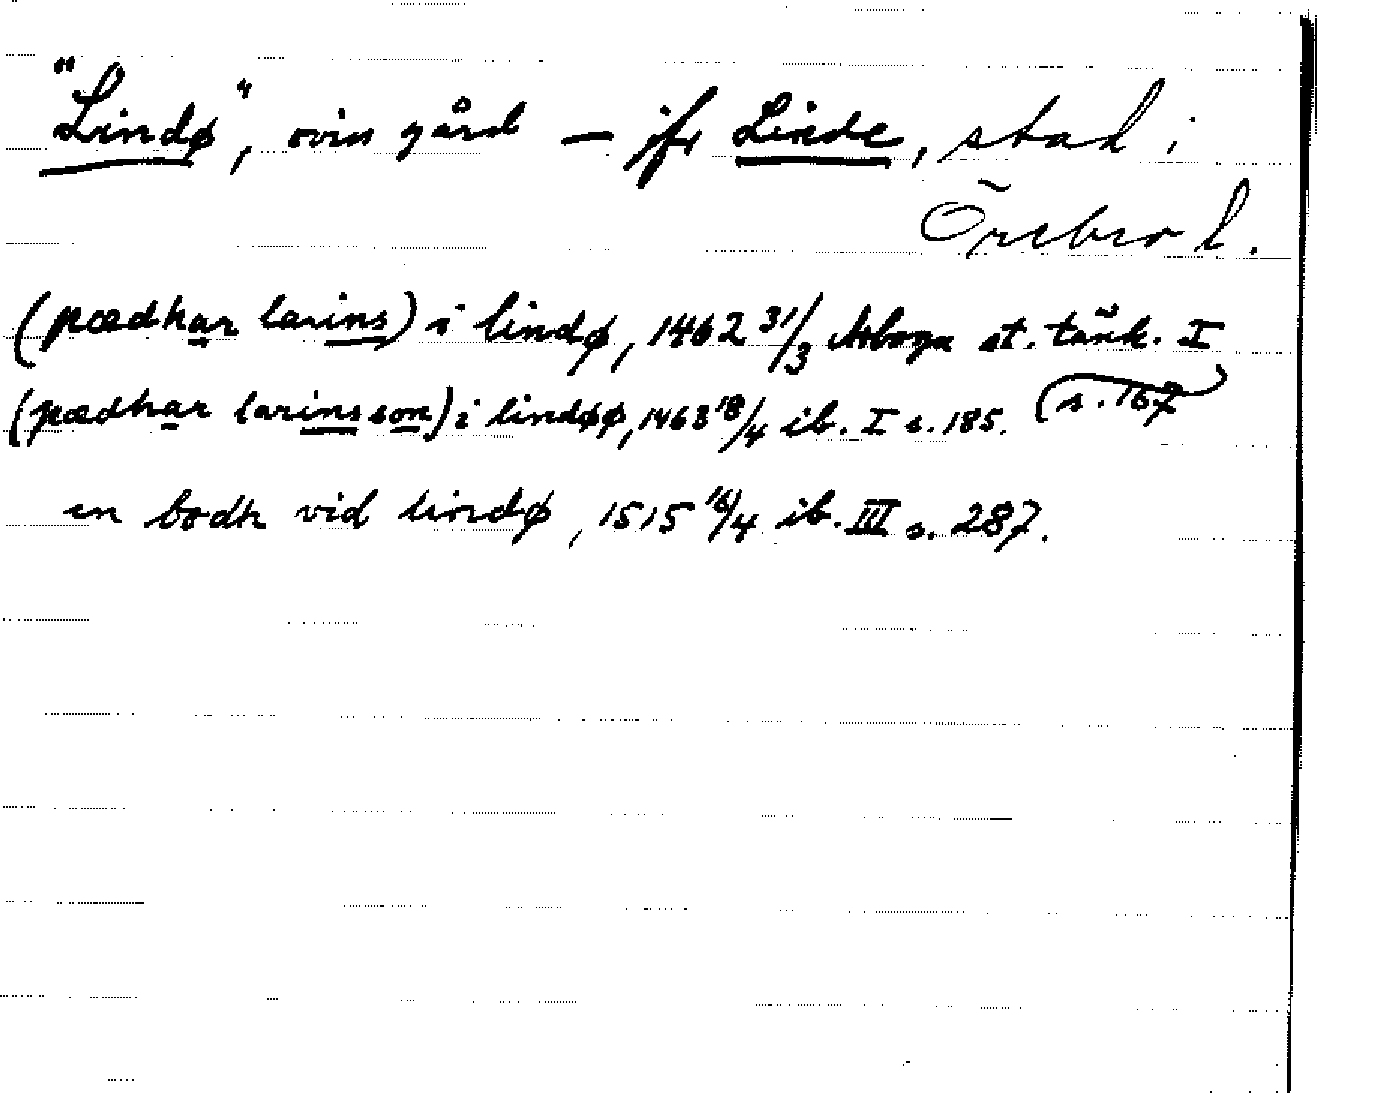 "Lindø", ovin gård — jfr Linde, stad i
Örebro l.
(pædhar larins) i lindø, 1462 31/3 Arboga st. tänk. I
(s. 167
(pædhar larinsson) i lindøø, 1463 18/4 ib. I s. 185.
en bodh vid lindø, 1515 16/4 ib. III s. 287.